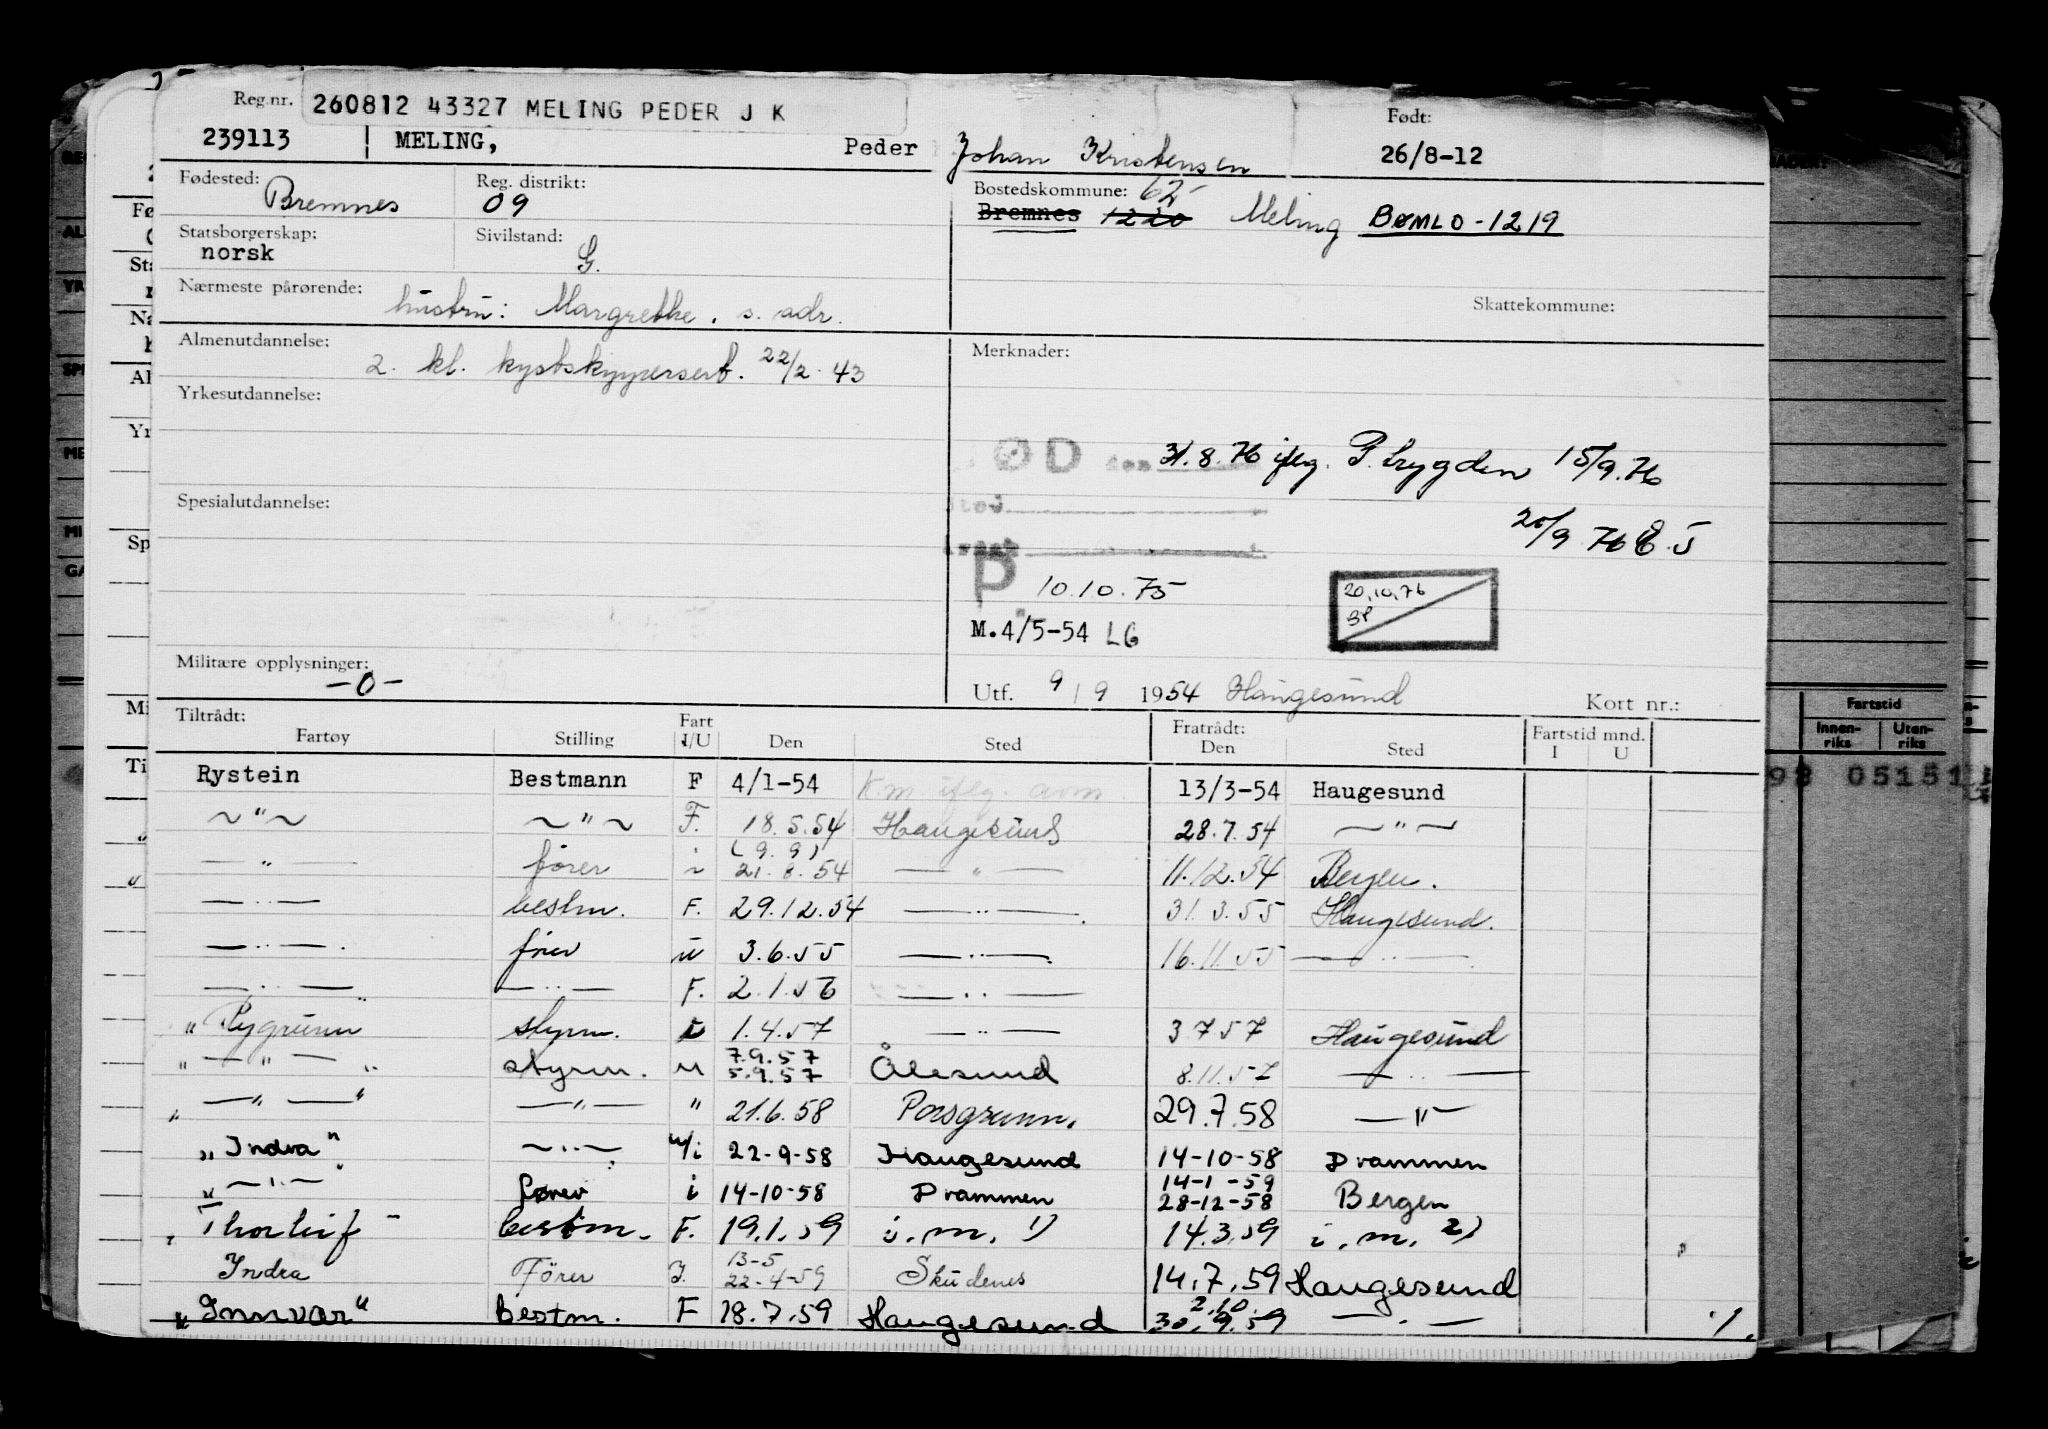 Reg.nr. 260812 43327 MELING PEDER J K Født:
239113 MELING, Peder Johan Kristensen 26/8-12
Fødested: Bremnes Reg. distrikt: 09 Bostedskommune: 62-
Bremnes 1220 Meling BØMLO-1219
Statsborgerskap: norsk Sivilstand: G.
Nærmeste pårørende: hustru: Margrethe. s. adr. Skattekommune:
Almenutdannelse: 2. kl. kystskippersert. 22/2-43 Merknader:
Yrkesutdannelse:
ØD den 31.8.76 iflg. P.trygden 15/9.76
Spesialutdannelse:
sted
20/9 76
P 10.10.75 20,10,76
SP
M.4/5-54 LG
Militære opplysninger: -0-
Utf. 9/9 1954 Haugesund Kort nr.:
Tiltrådt: Fratrådt: Fartstid mnd.
Fartøy Stilling Fart I/U Den Sted Den Sted I U
Rystein Bestmann F 4/1-54 Km iflg. avm. 13/3-54 Haugesund
~"~ ~"~ F. 18.5.54 Haugesund 28.7.54 —"—
(9.9)
—"— fører i 21.8.54 —"— 11.12.54 Bergen.
—"— bestm. F. 29.12.54 —"— 31.3.55 Haugesund.
—"— fører u 3.6.55 —"— 16.11.55 —"—
—"— —"— F. 2.1.56 —"—
"Rygrunn" styrm. i 1.4.57 —"— 3 7 57 Haugesund
7.9.57
"—"—" styrm. u 5.9.57 Ålesund 8.11.57 —"—
"—"—" —"— " 21.6.58 Porsgrunn. 29.7.58 —"—
"Indra" —"— u/i 22-9-58 Haugesund 14-10-58 Drammen
14-1-59
"—"—" fører i 14-10-58 Drammen 28-12-58 Bergen
"Thorleif" bestm. F. 19.1.59 i.m. 1) 14.3.59 i.m. 2)
13-5
Indra Fører I. 22-4-59 Skudenes 14.7.59 Haugesund
2.10.
"Innvar" bestm. F 18.7.59 Haugesund 30.9.59 —"— ./.
Fartstid
Innen-riks Uten-riks
93 05151